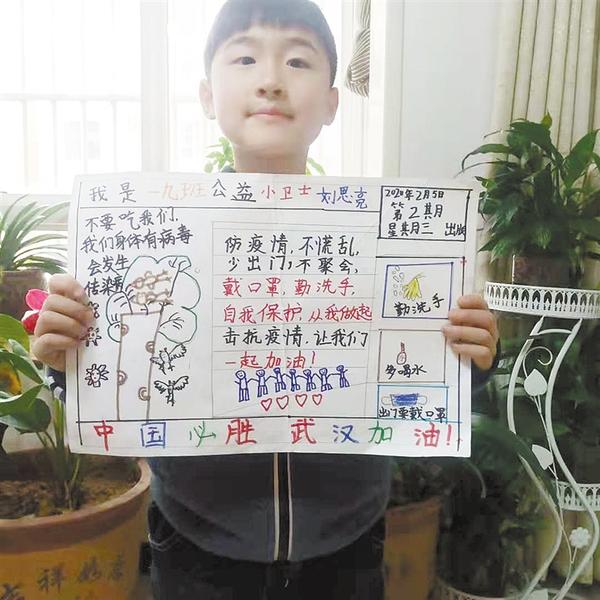 我是一九班公益小卫士刘思亮
2020年2月5日
第2期月
星其月三 出版
不要吃我们,
我们身体有病毒
会发生
传染病
防疫情,不慌乱,
少出门,不聚会,
戴口罩,勤洗手,
自我保护,从我做起
击抗疫情,让我们
一起加油!
勤洗手
多喝水
出门要戴口罩
中国必胜 武汉加油!
吉祥